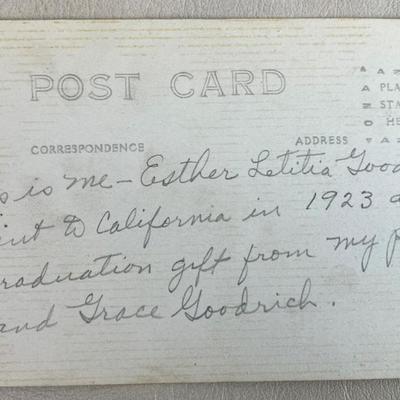 POST CARD
CORRESPONDENCE
ADDRESS
A Z
PLA
STA
HE
is me - Esther Letitia Good
to California in 1923
graduation gift from my
and Grace Goodrich.